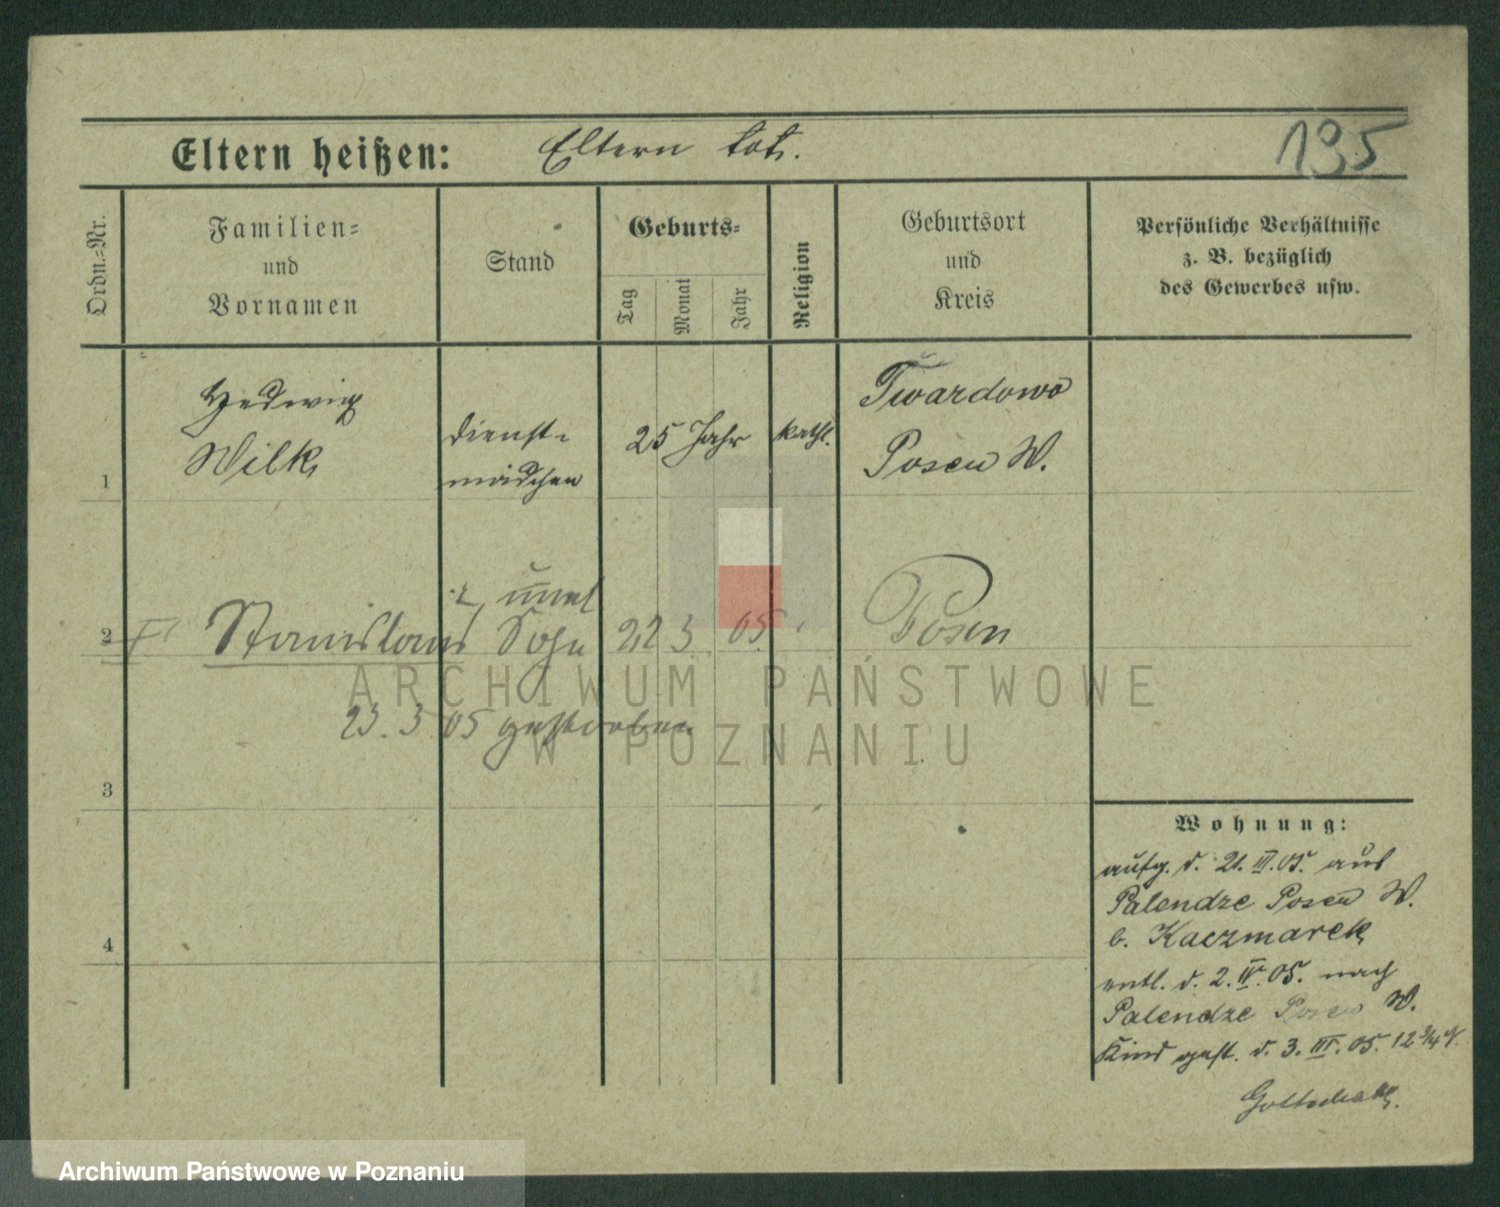 Eltern heißen: Eltern tot. 195
Ordn.-Nr.
Familien-
und
Vornamen
Stand
Geburts-
Tag
Monat
Jahr
Religion
Geburtsort
und
Kreis
Persönliche Verhältnisse
z. B. bezüglich
des Gewerbes usw.
Hedwig
Wilk
Dienst-
mädchen
25 Jahr
kath.
Twardowo
Posen W.
1
unel
2 Stanislaus Sohn 22 3 05 Posen
23. 3 05 gestorben
3
4
Wohnung:
aufg. d. 21. III. 05. aus
Palendze Posen W.
b. Kaczmarek
entl. d. 2. IV. 05. nach
Palendze Posen W.
Kind gest. d. 3. III. 05. 12 3/4
Gottschalk.
ARCHIWUM PAŃSTWOWE
W POZNANIU
Archiwum Państwowe w Poznaniu